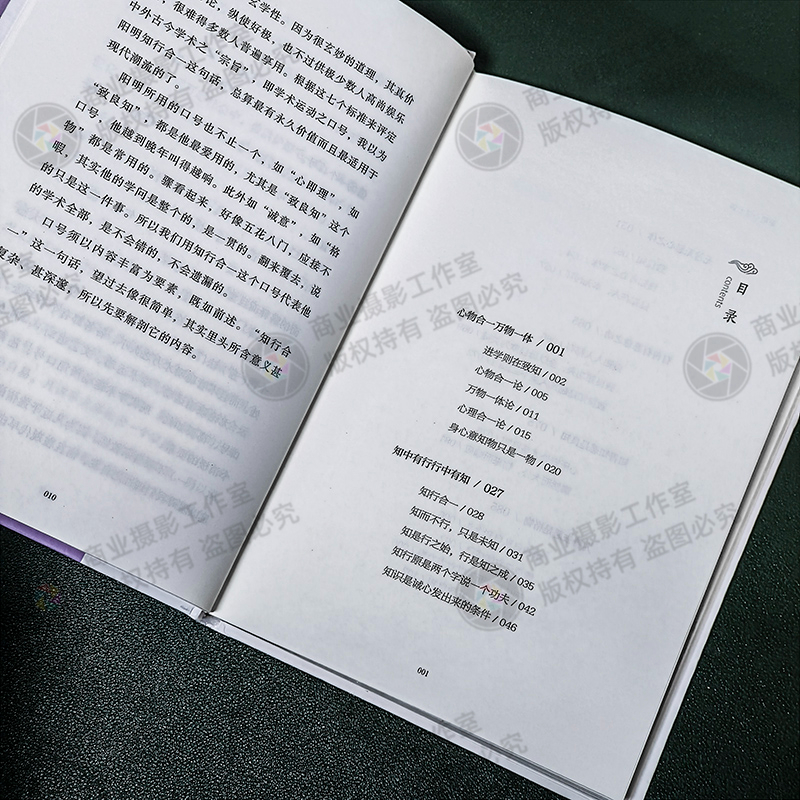 玄学性。因为很玄妙的道理，其真价
论，纵使好极，也不过供极少数人高尚娱乐
，很难得多数人普遍享用。根据这七个标准来评定
中外古今学术之“宗旨”，即学术运动之口号，我以为
阳明知行合一这句话，总算最有永久价值而且最适用于
现代潮流的了。
阳明所用的口号也不止一个，如“心即理”，如
“致良知”，都是他最爱用的，尤其是“致良知”这个
口号，他越到晚年叫得越响。此外如“诚意”，如“格
物”都是常用的。骤看起来，好像五花八门，应接不
暇，其实他的学问是整个的，是一贯的。翻来覆去，说
的只是这一件事。所以我们用知行合一这个口号代表他
的学术全部，是不会错的，不会遗漏的。
口号须以内容丰富为要素，既如前述。“知行合
一”这一句话，望过去像很简单，其实里头所含意义甚
复杂、甚深邃，所以先要解剖它的内容。
010
目录
contents
心物合一万物一体 / 001
进学则在致知 / 002
心物合一论 / 005
万物一体论 / 011
心理合一论 / 015
身心意知物只是一物 / 020
知中有行行中有知 / 027
知行合一 / 028
知而不行，只是未知 / 031
知是行之始，行是知之成 / 035
知行原是两个字说一个功夫 / 042
知识是诚心发出来的条件 / 046
001
商业摄影工作室
版权持有 盗图必究
商业摄影工作室
版权持有 盗图必究
商业摄影工作室
版权持有 盗图必究
商业摄影工作室
版权持有 盗图必究
商业摄影工作室
版权持有 盗图必究